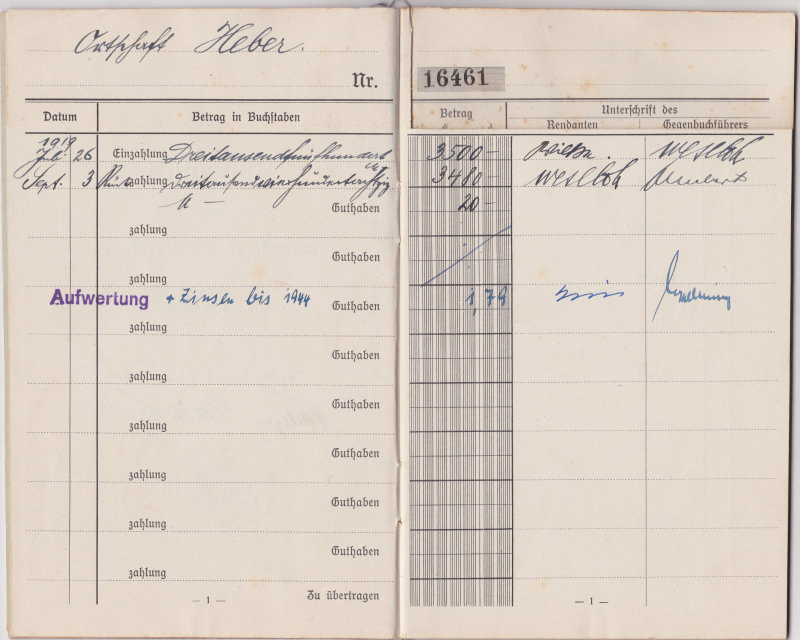 Ortschaft Heber.
Nr. 16461
Datum Betrag in Buchstaben Betrag Unterschrift des
Rendanten Gegenbuchführers
1919
26 Einzahlung Dreitausendfünfhundert 3500 —
Sept. 3 Rückzahlung Dreitausendvierhundertachtzig 3480 — Weseloh
Guthaben 20 —
zahlung
Guthaben
zahlung
Aufwertung + Zinsen bis 1944 Guthaben 1,79
zahlung
Guthaben
zahlung
Guthaben
zahlung
Guthaben
zahlung
Guthaben
zahlung
Guthaben
zahlung
— 1 — Zu übertragen — 1 —